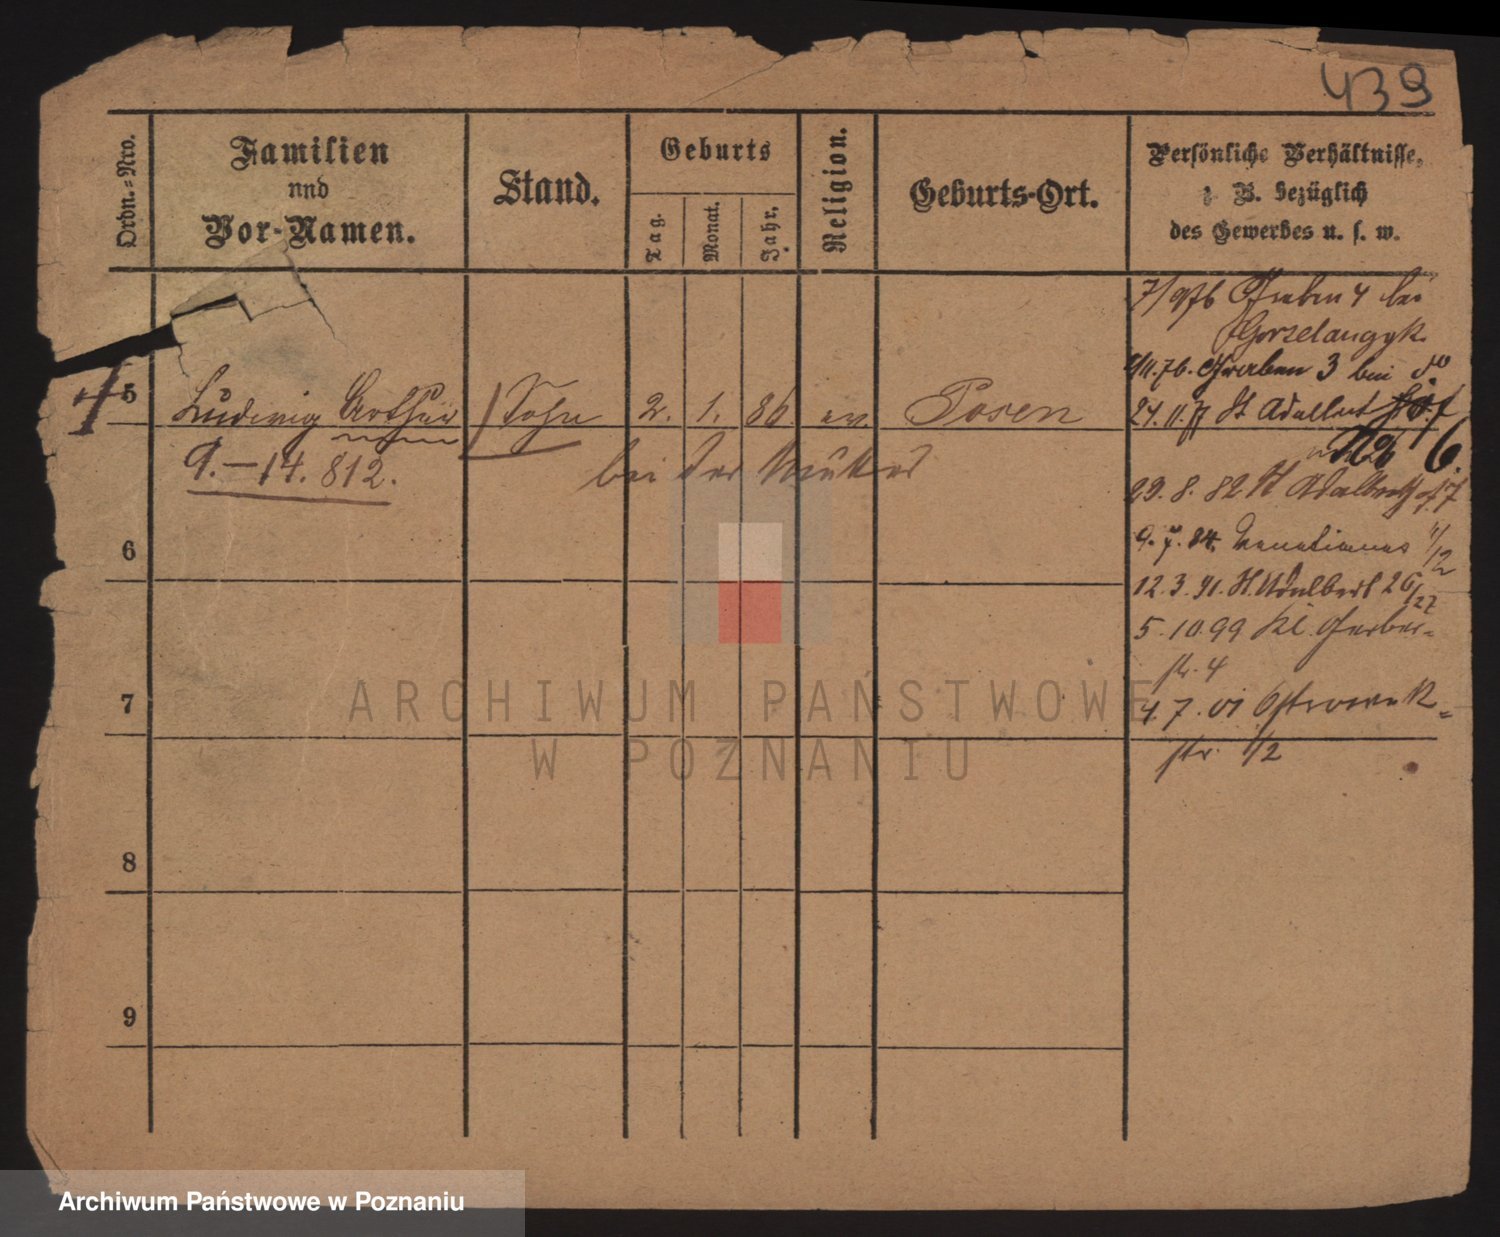 439
Ordn.=Nro.
Familien
und
Vor-Namen.
Stand.
Geburts
Tag.
Monat.
Jahr.
Religion.
Geburts-Ort.
Persönliche Verhältnisse,
z. B. bezüglich
des Gewerbes u. s. w.
7/9 76 Graben 4 bei
Gorzelanczyk
76. Graben 3 bei do
5
Ludwig Arthur
Sohn
2. 1. 86 ev. Posen
24. 11. 77 St Adalbert
No 6.
9.–14. 812.
bei der Mutter
29. 8. 82 St Adalbert 7
6
9. 7. 84. Venetianer 11/12
12. 3. 91. St. Adalbert 26/27
5. 10. 99 Kl. Gerber-
str. 4
7
4. 7. 01 Ostrowek-
str. 1/2
8
9
ARCHIWUM PAŃSTWOWE
W POZNANIU
Archiwum Państwowe w Poznaniu